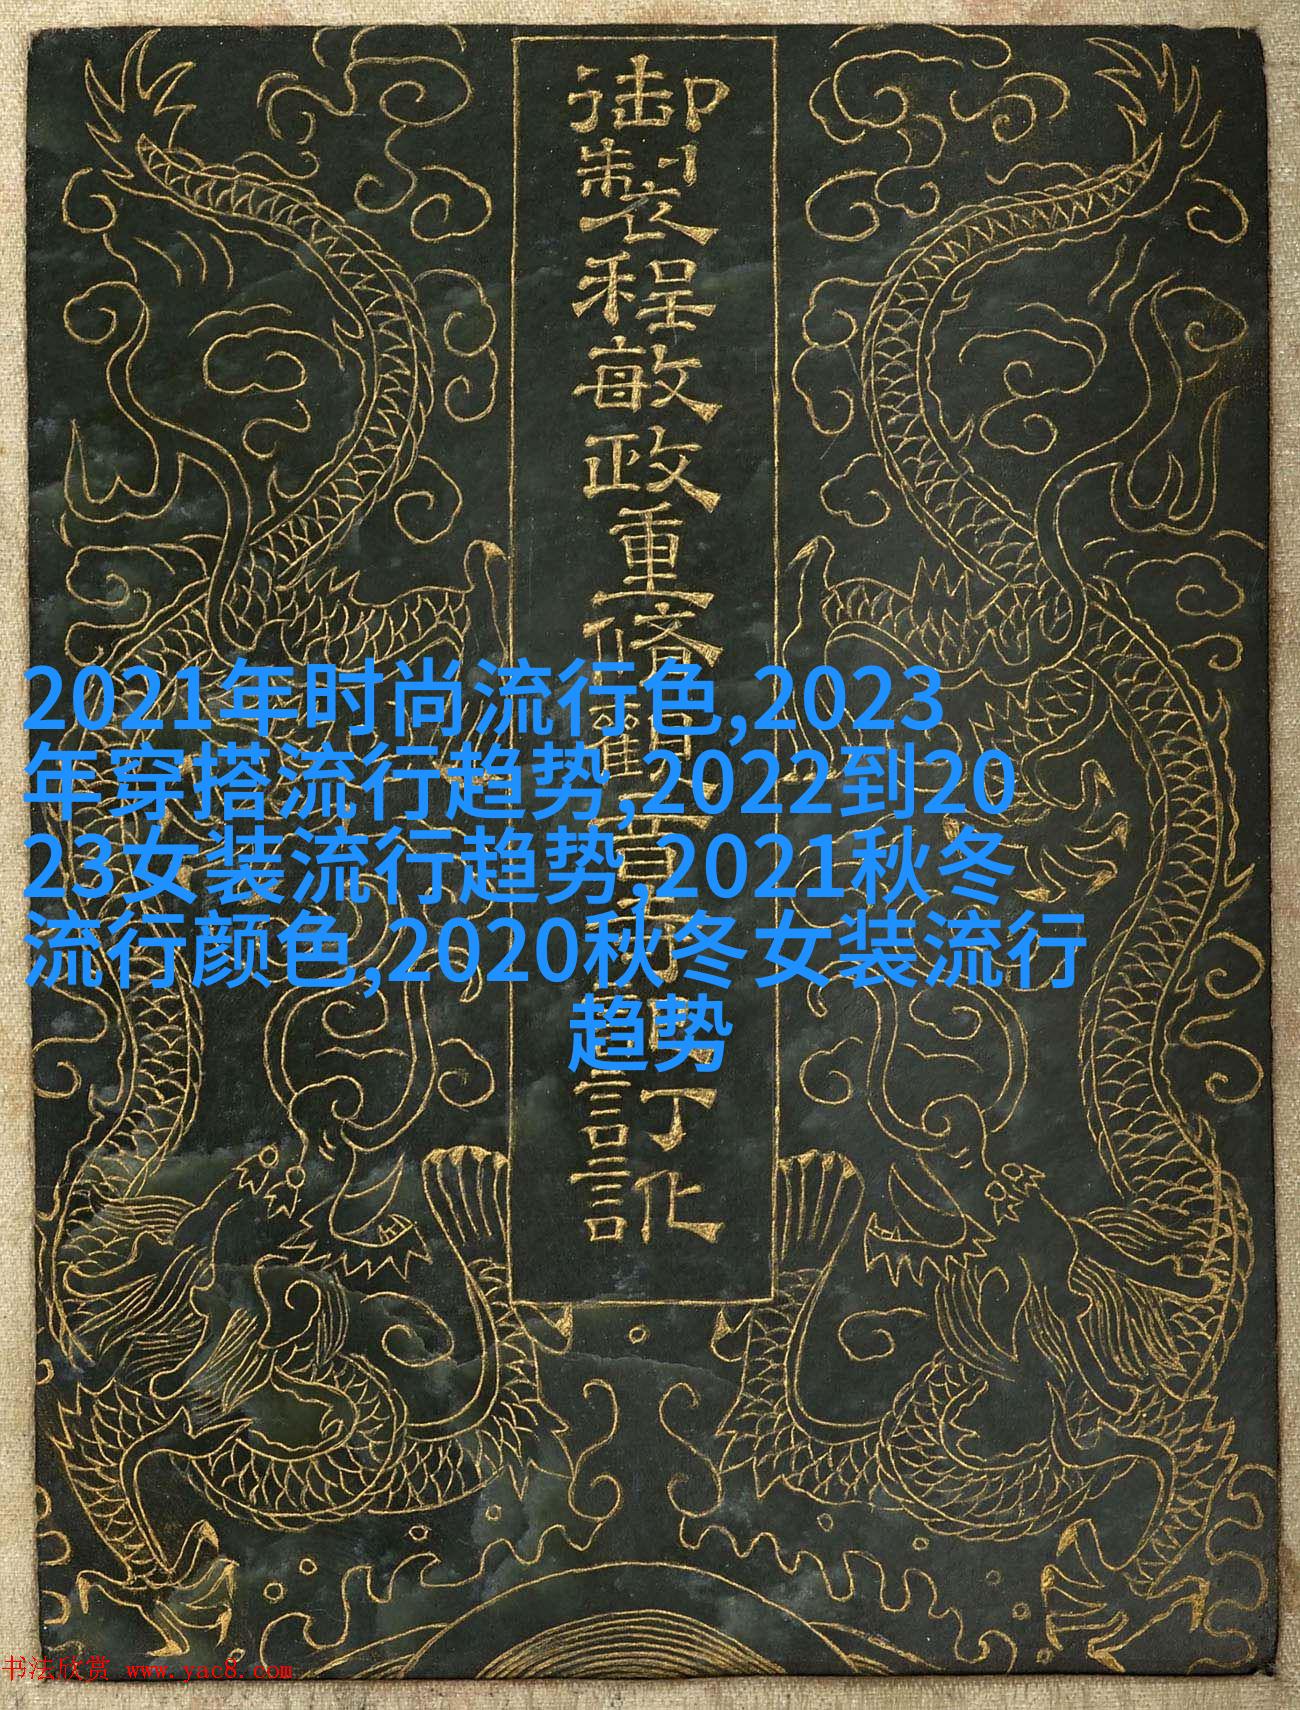 御製程敏政重脩訂訛
2021年时尚流行色,2023
年穿搭流行趋势,2022到20
23女装流行趋势,2021秋冬
流行颜色,2020秋冬女装流行
趋势
书法欣赏 www.yac8.com